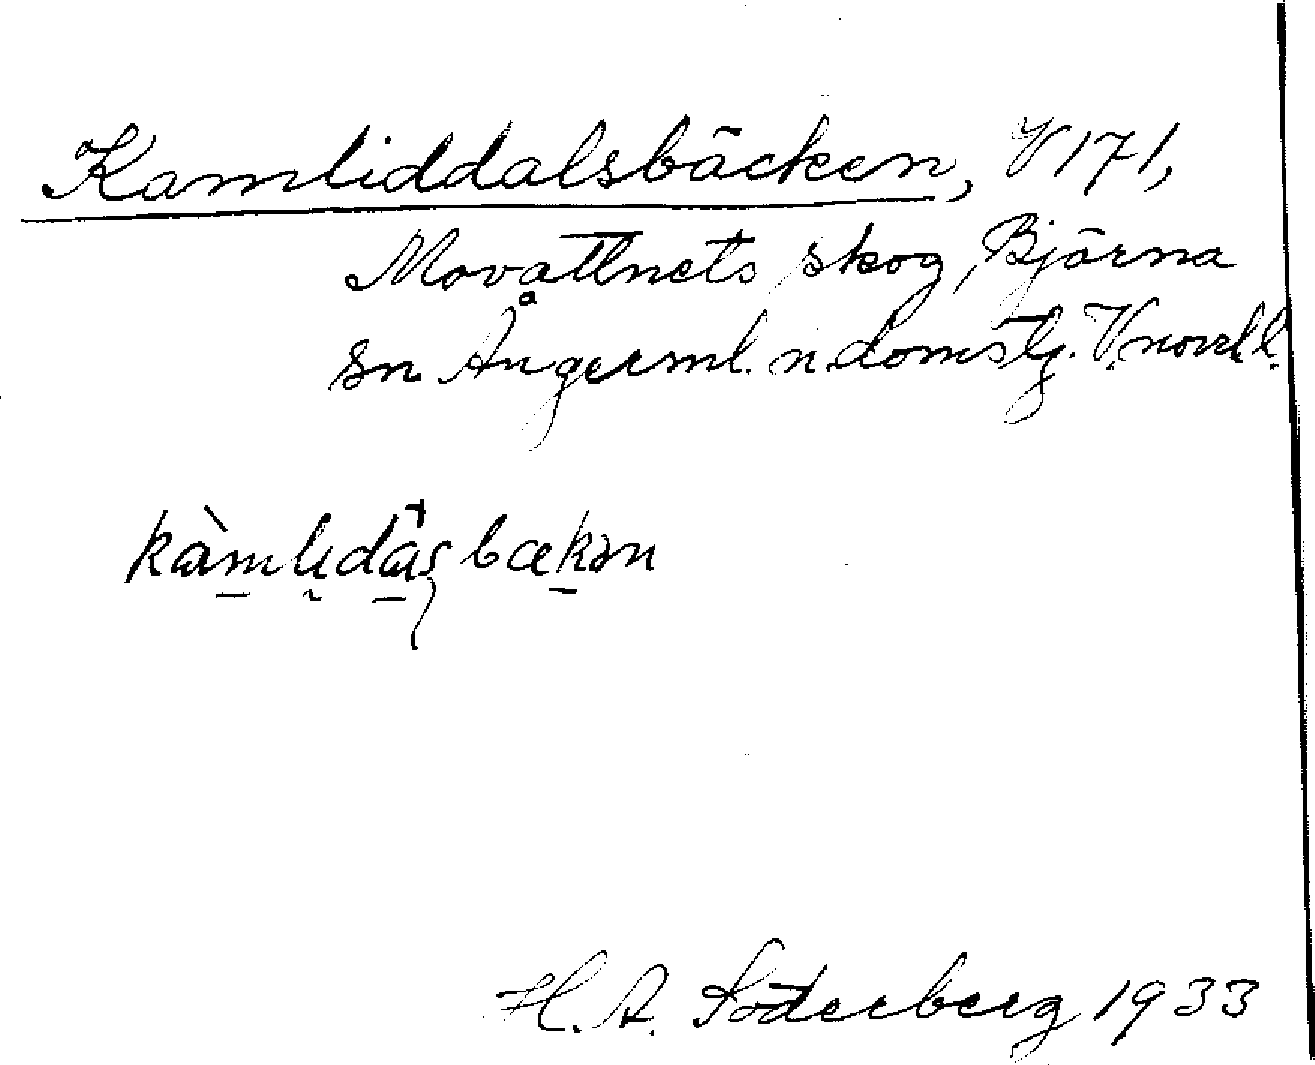 Kamliddalsbäcken, V 171,
Movattnets skog, Björna
sn Ångerml. n. domstg. V.norrl.l.
kàmlidàsbækən
H. A. Söderberg 1933